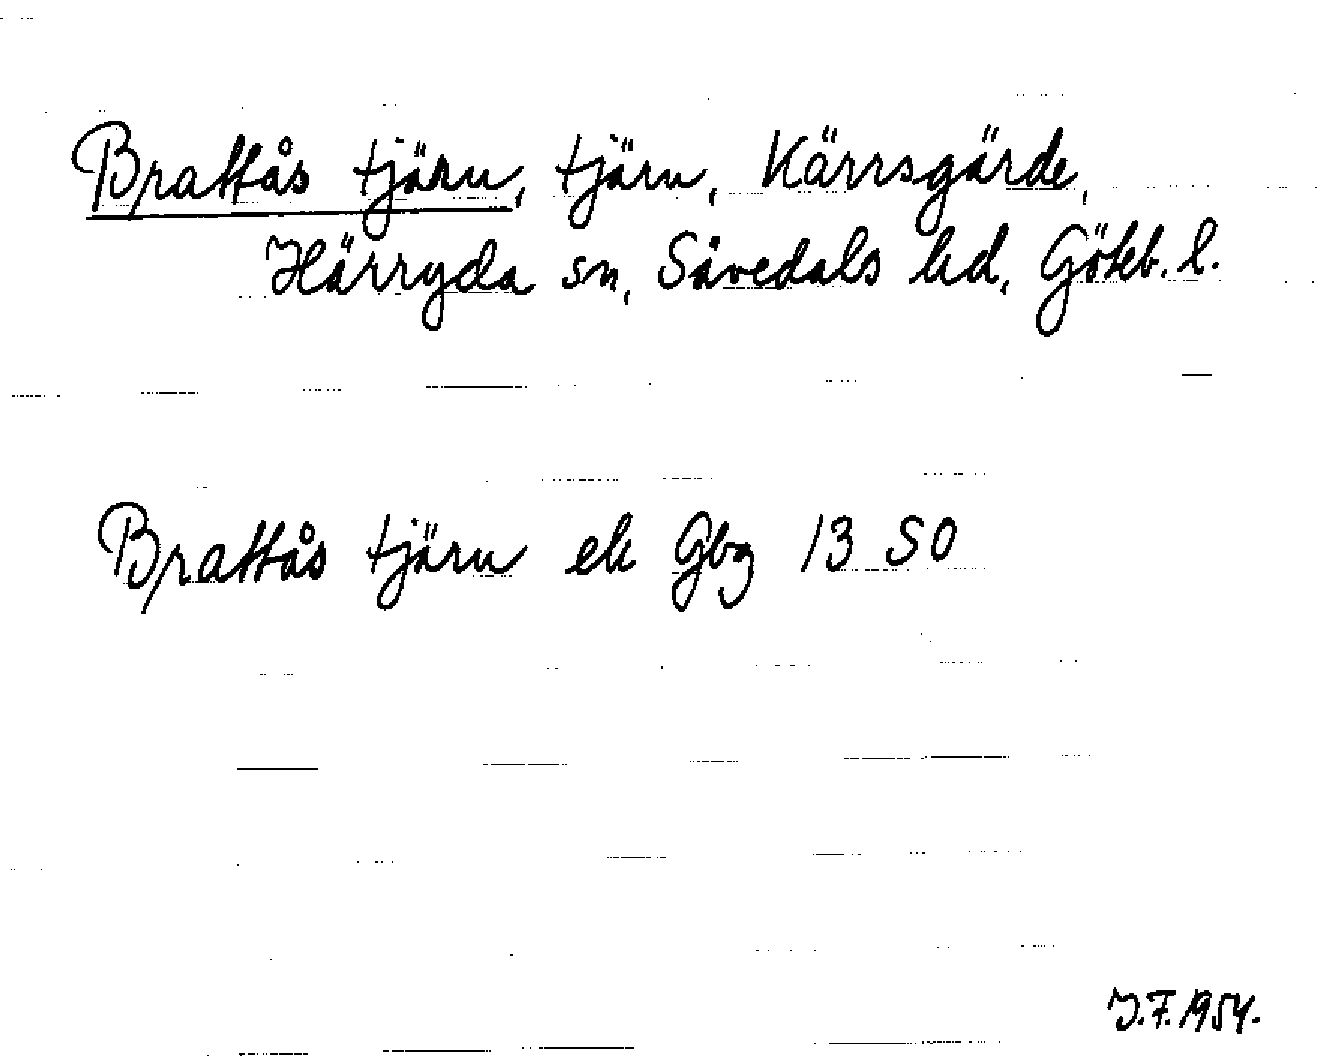 Brattås tjärn, tjärn, Kärrsgärde,
Härryda sn, Sävedals hd, Göteb. l.
Brattås tjärn ek Gbg 13 SO
J.F. 1954.